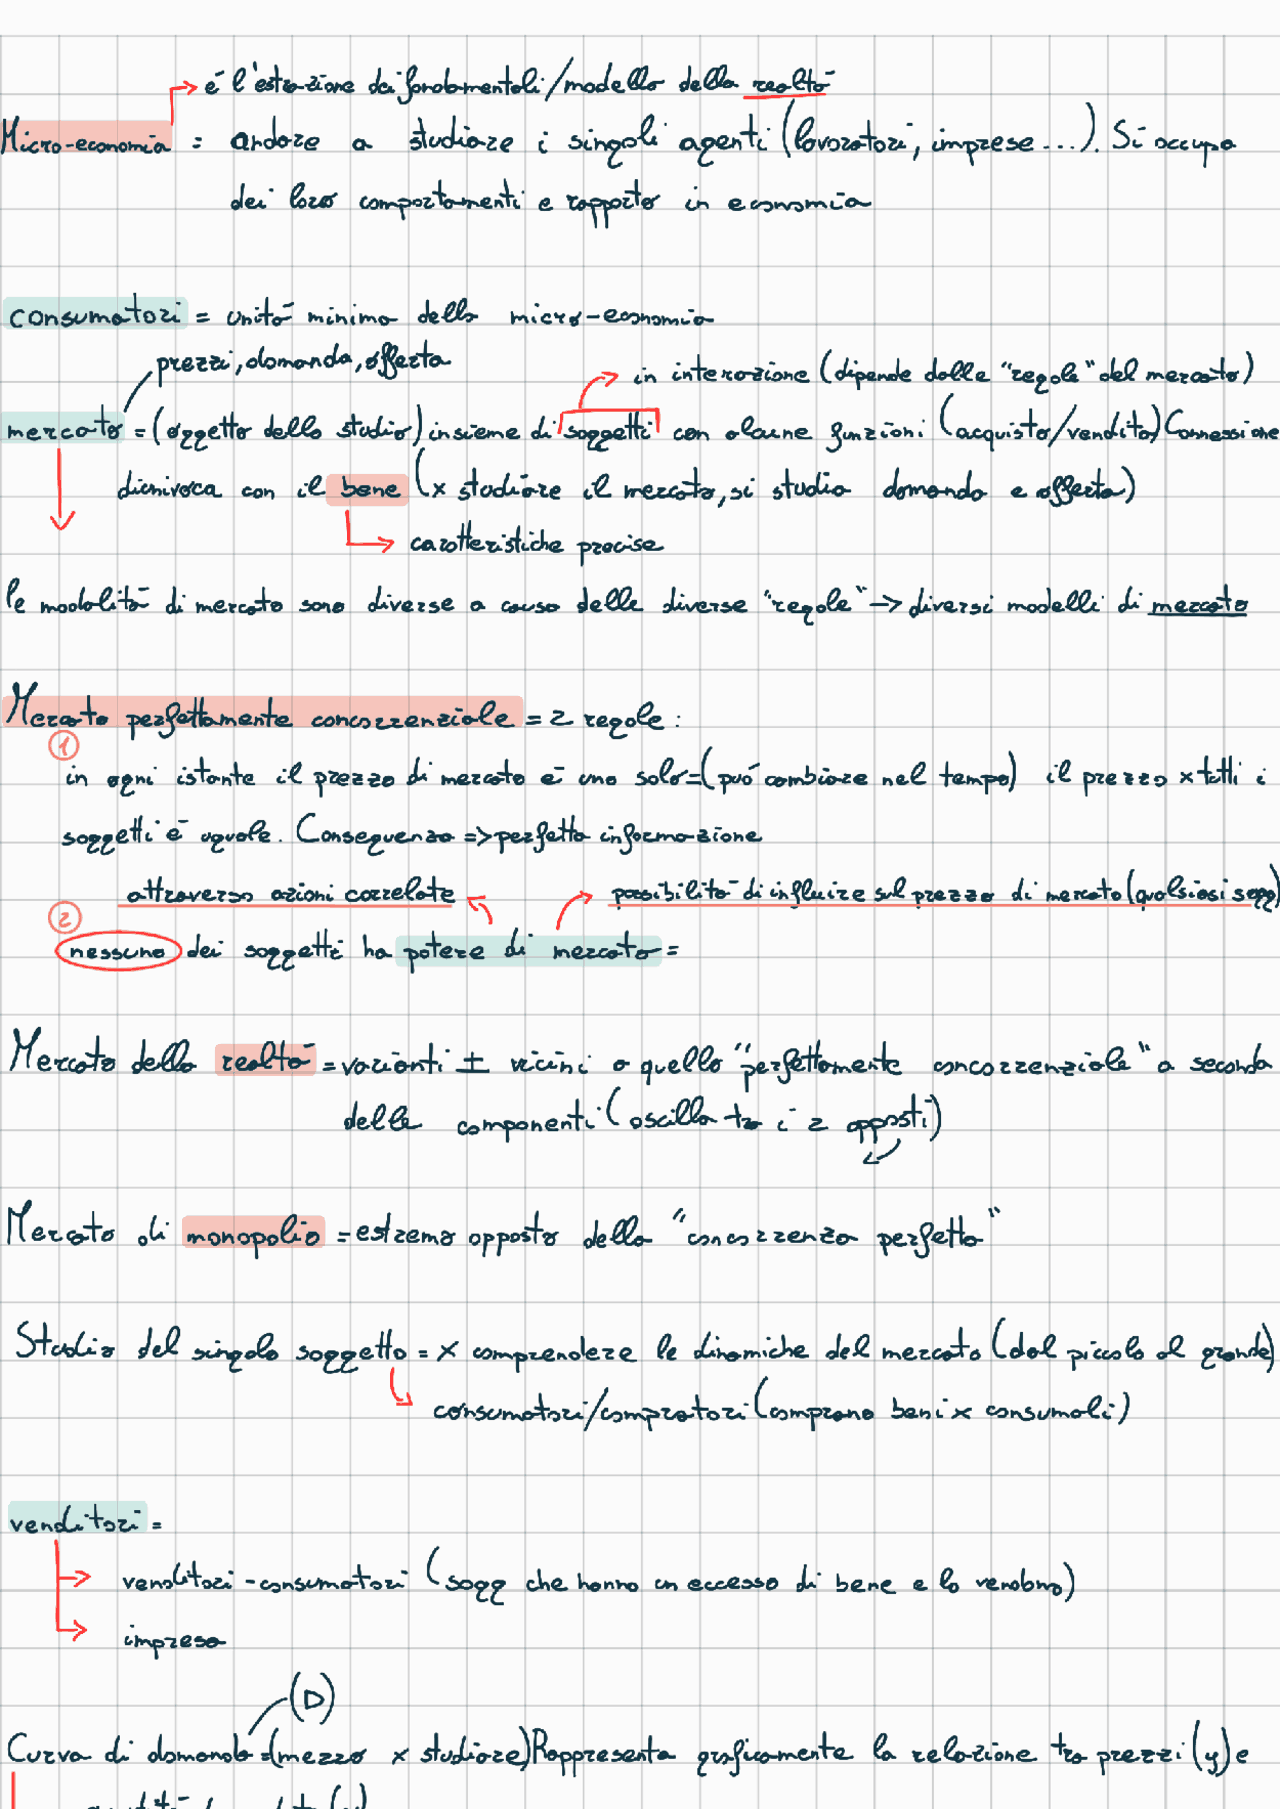 è l'estrazione dei fondamentali/modello della realtà
Micro-economia = andare a studiare i singoli agenti (lavoratori, imprese...). Si occupa
dei loro comportamenti e rapporto in economia
consumatori = unità minima della micro-economia
prezzi, domanda, offerta
in interazione (dipende dalle "regole" del mercato)
mercato = (oggetto dello studio) insieme di soggetti con alcune funzioni (acquisto/vendita) Connessione
con il bene (x studiare il mercato, si studia domanda e offerta)
caratteristiche precise
le modalità di mercato sono diverse a causa delle diverse "regole" -> diversi modelli di mercato
Mercato perfettamente concorrenziale = 2 regole:
1
in ogni istante il prezzo di mercato è uno solo = (può cambiare nel tempo) il prezzo x tutti i
soggetti è uguale. Conseguenza => perfetta informazione
attraverso azioni correlate possibilità di influire sul prezzo di mercato (qualsiasi sogg)
2
nessuno dei soggetti ha potere di mercato =
Mercato della realtà = varianti ± vicini a quello "perfettamente concorrenziale" a seconda
delle componenti (oscilla tra i 2 opposti)
Mercato di monopolio = estremo opposto della "concorrenza perfetta"
Studio del singolo soggetto = x comprendere le dinamiche del mercato (dal piccolo al grande)
consumatori/compratori (comprano beni x consumali)
venditori =
venditori-consumatori (sogg che hanno un eccesso di bene e lo vendono)
impresa
(D)
Curva di domanda = (mezzo x studiare) Rappresenta graficamente la relazione tra prezzi (y) e